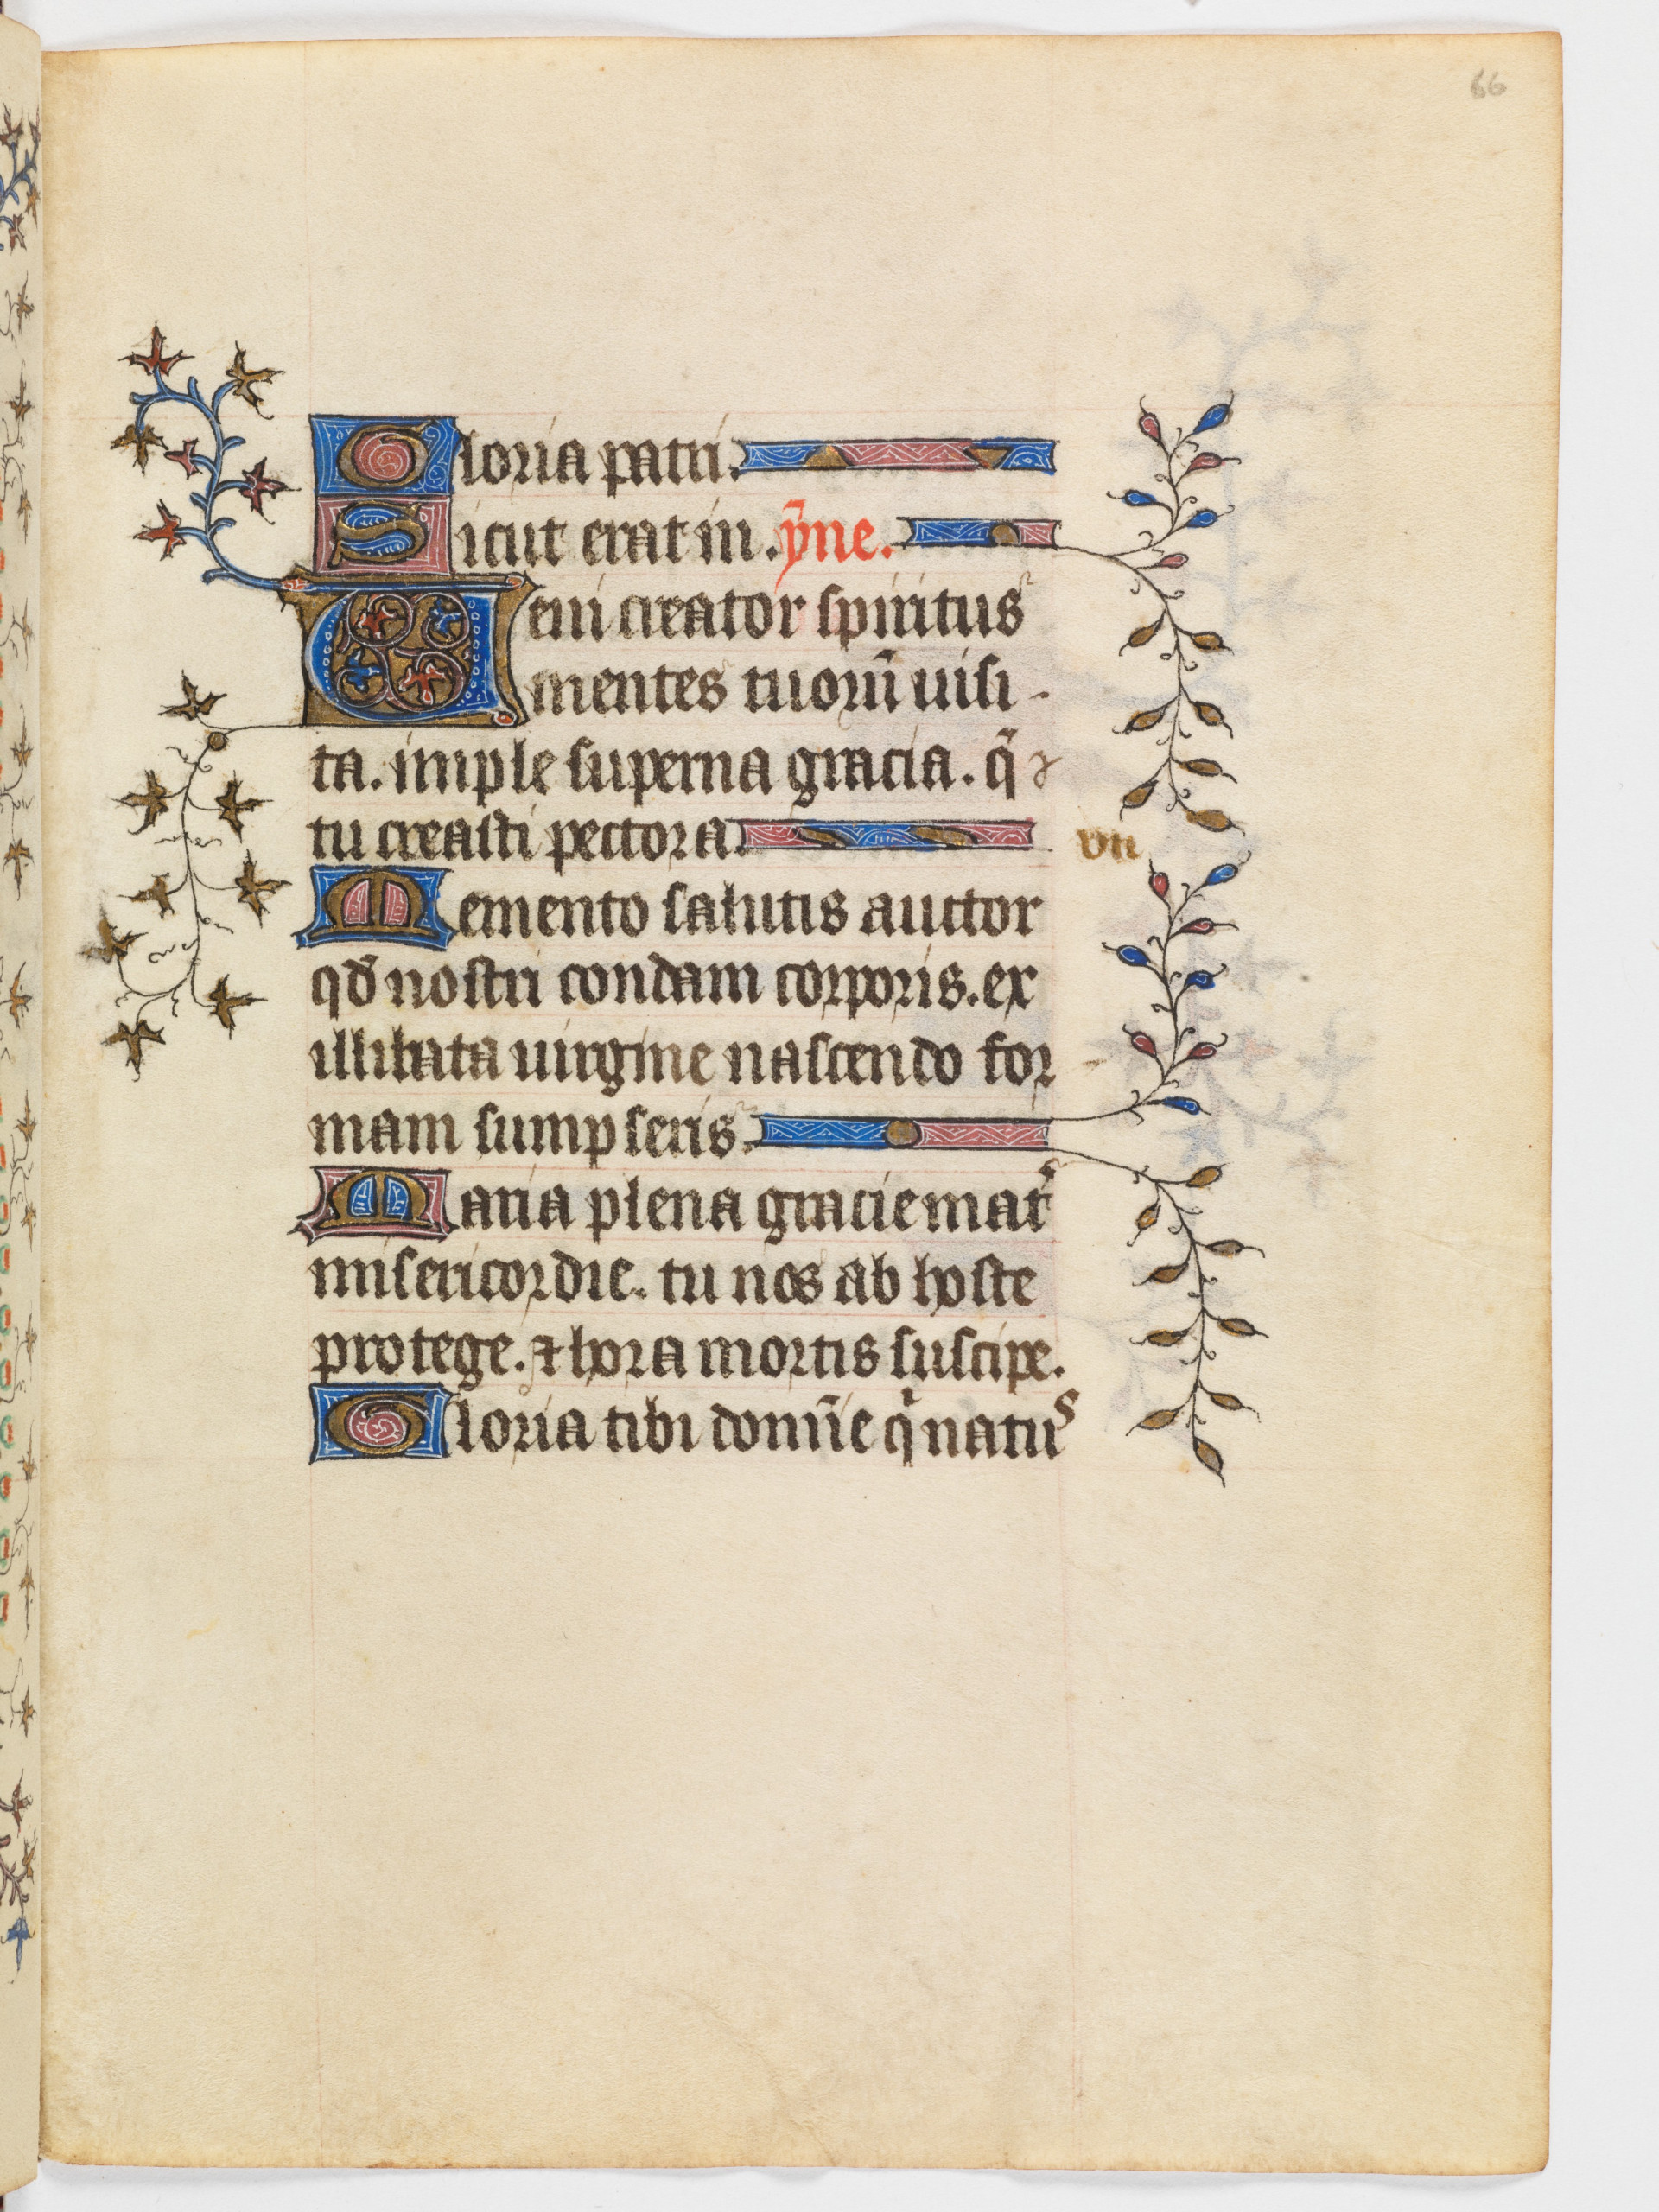 66
Gloria patri.
Sicut erat in. ẏmne.
Veni creator spiritus
mentes tuoru᷑ uisi-
ta. imple superna gracia. q̄
tu creasti pectora.
vn
Memento salutis auctor
qđ nostri condam corporis. ex
illibata uirgine nascendo for
mam sumpseris.
Maria plena gracie mat͛
misericordie. tu nos ab hoste
protege. ⁊ hora mortis suscipe.
Gloria tibi domīe qͥ natus